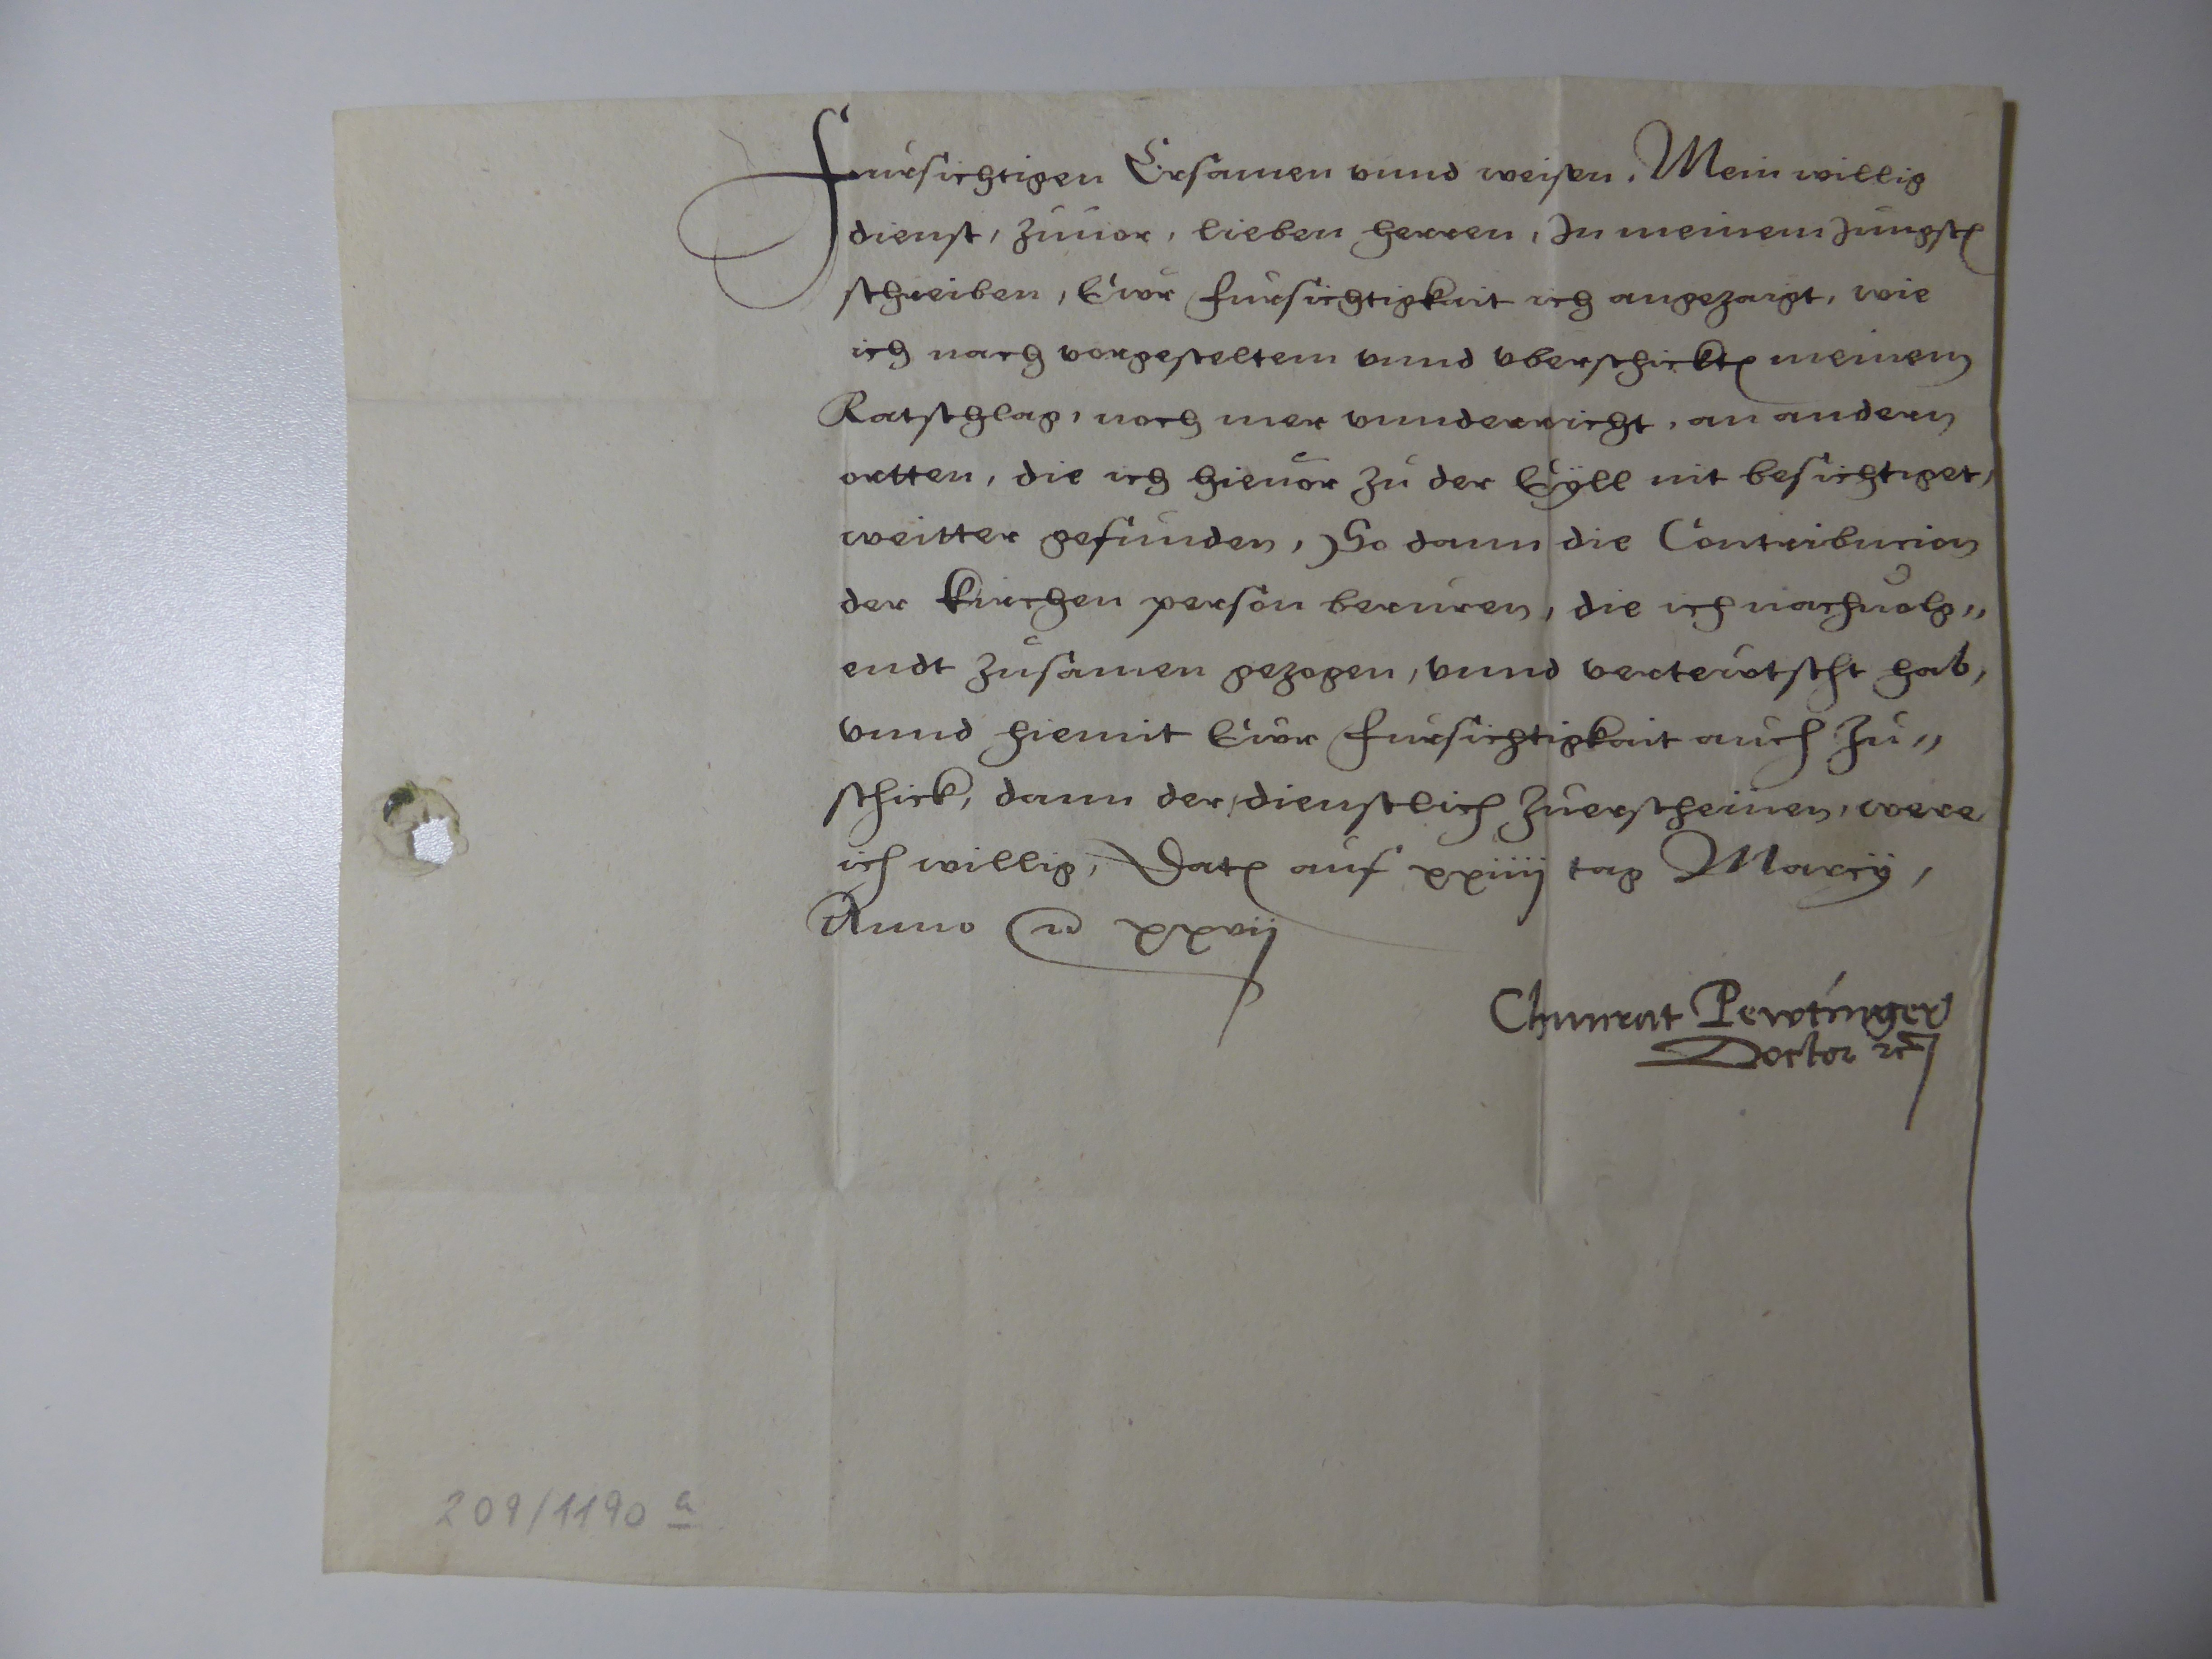 Fursichtigen Ersamen vnnd weisen. Mein willig
dienst, zuuor, lieben herren, In meinem Jungstn
schreiben, Ewr fursichtigkait ich angezaigt, wie
ich nach vorgesteltem vnnd vberschicktn meinem
Ratschlag, noch mer vnnderricht, an andern
ortten, die ich hieuor zu der Eyll nit besichtiget,
weitter gefunden, So dann die Contribucion
der kirchen person beruren, die ich nachuolg„
endt zusamen gezogen, vnnd verteutscht hab,
vnnd hiemit Ewr fursichtigkait auch zu„
schick, dann der dienstlich zuerscheinen, were
ich willig, Datn auf xxiiij tag Marcij,
Anno &c xxvij
Chunrat Pewtinger
Doctor &c
209/1190 a